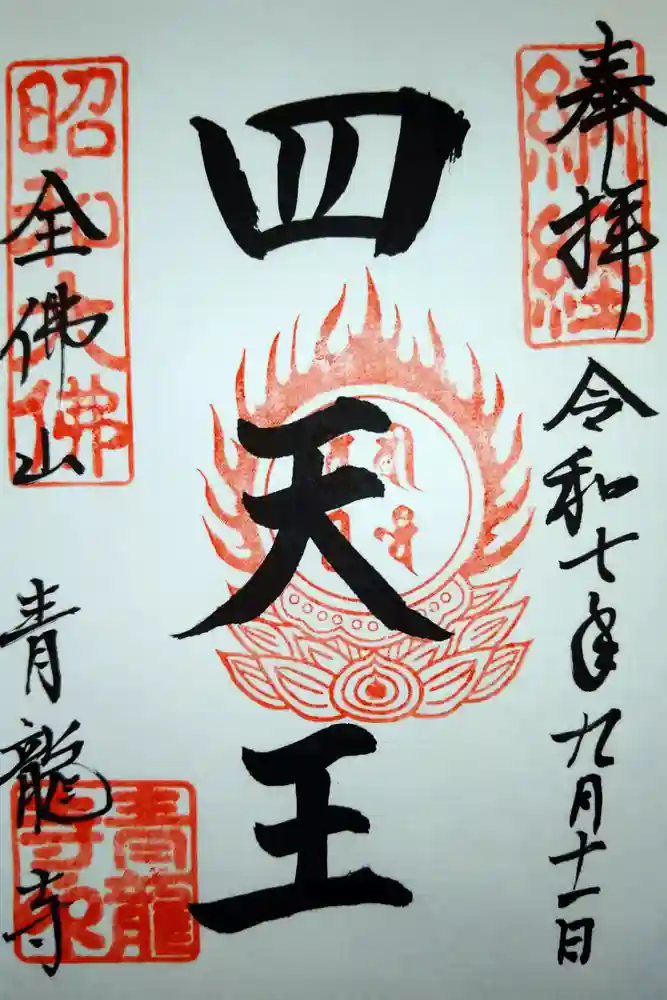 奉拝
令和七年九月十一日
納経
四天王
全佛山
青龍寺
昭和大佛
青龍
寺